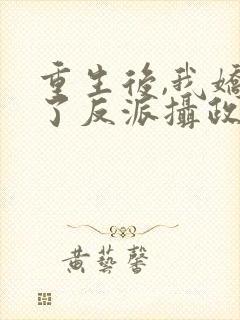 重生後,我嬌
了反派攝政
黃藝馨